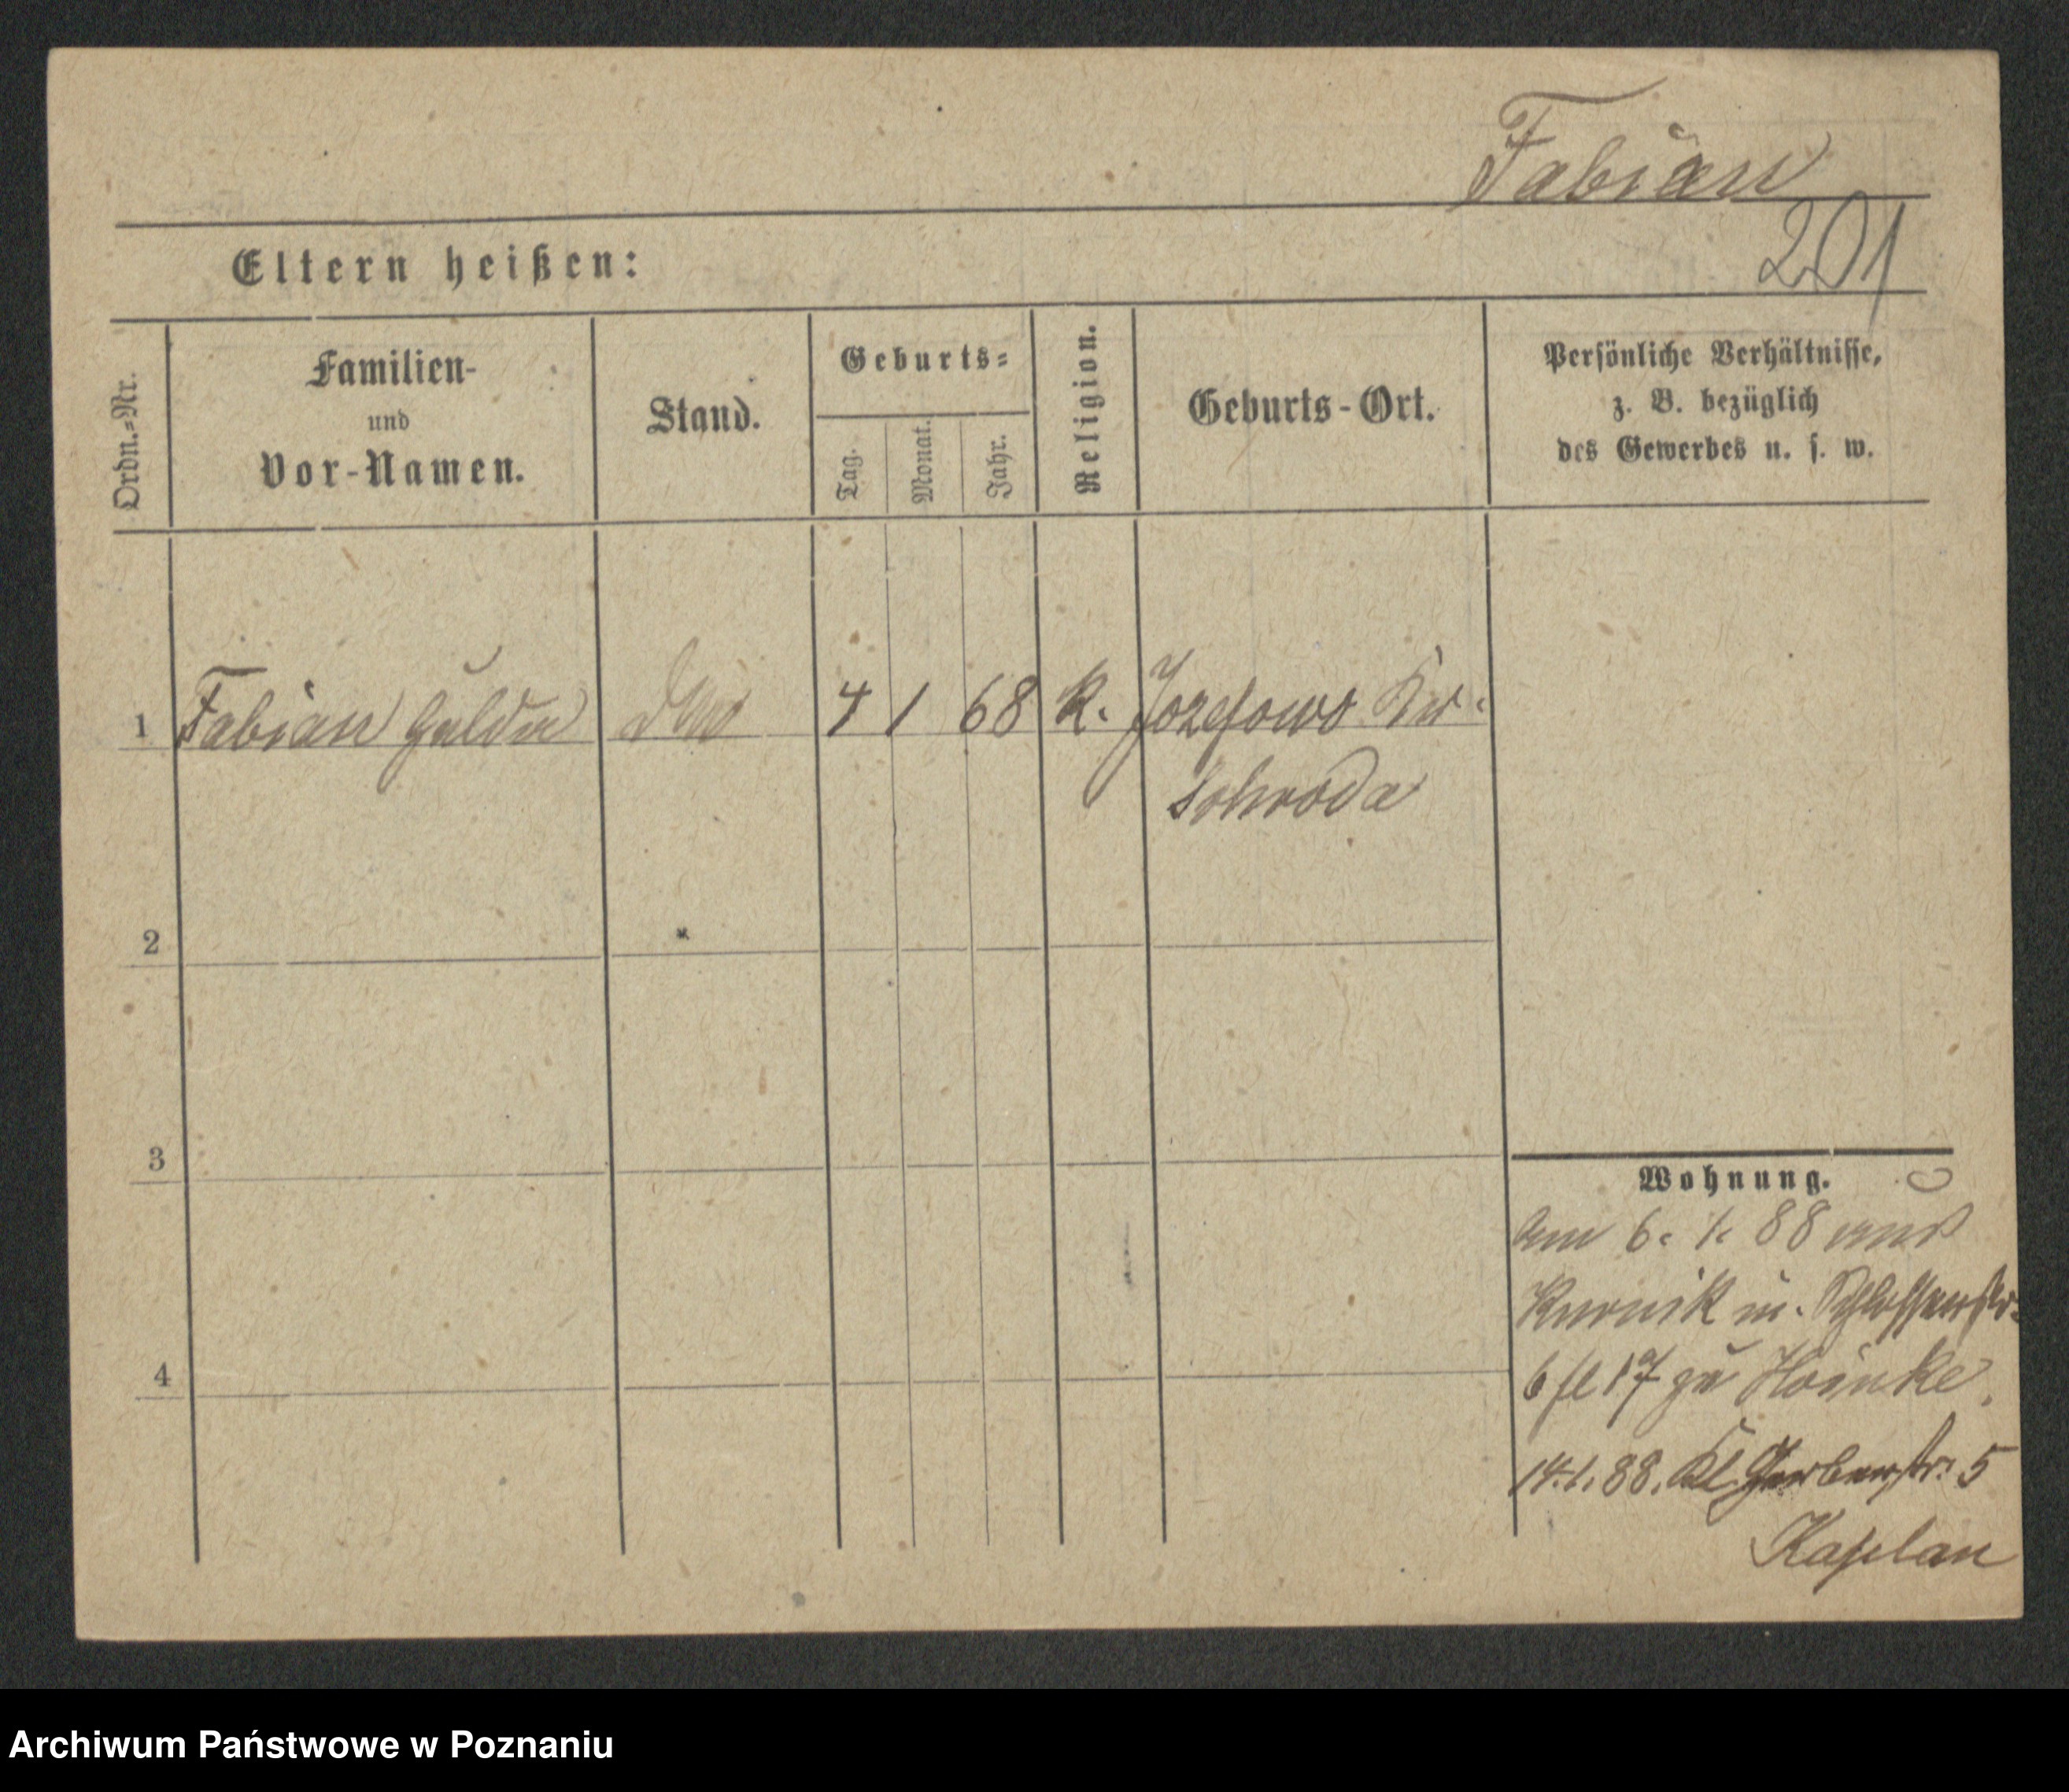 Fabian
201
Eltern heißen:
Ordn.-Nr.
Familien-
und
Vor-Namen.
Stand.
Geburts-
Tag.
Monat.
Jahr.
Religion.
Geburts-Ort.
Persönliche Verhältnisse,
z. B. bezüglich
des Gewerbes u. s. w.
1 Fabian 4 1 68 K. Jozefowo Kr.
Schroda
2
3
4
Wohnung.
Am 6. 1. 88 aus
Kurnik in. Schlosserstr.
6 fl 17 zu Hoinke
14.1.88. Kl. Gerberstr. 5
Kaplan
Archiwum Państwowe w Poznaniu